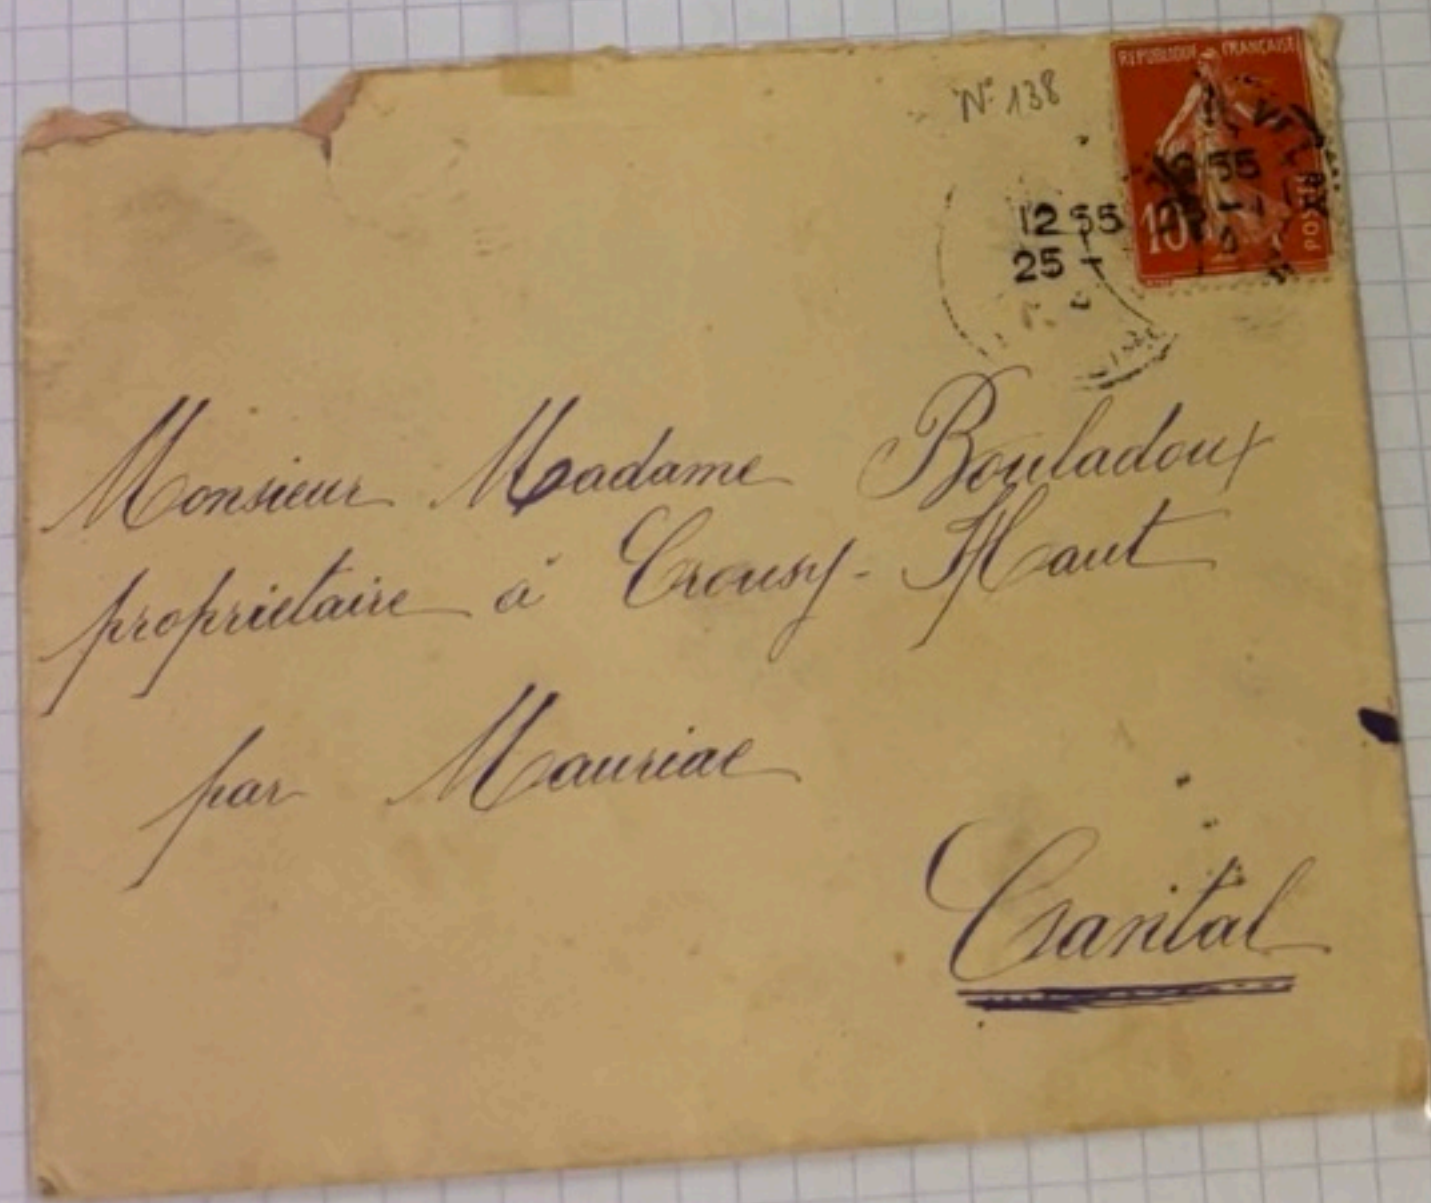 N° 138
REPUBLIQUE FRANÇAISE
12 55
25 -
10
POSTES
Monsieur Madame Bouladoux
proprietaire à Crousy-Haut
par Mauriac
Cantal